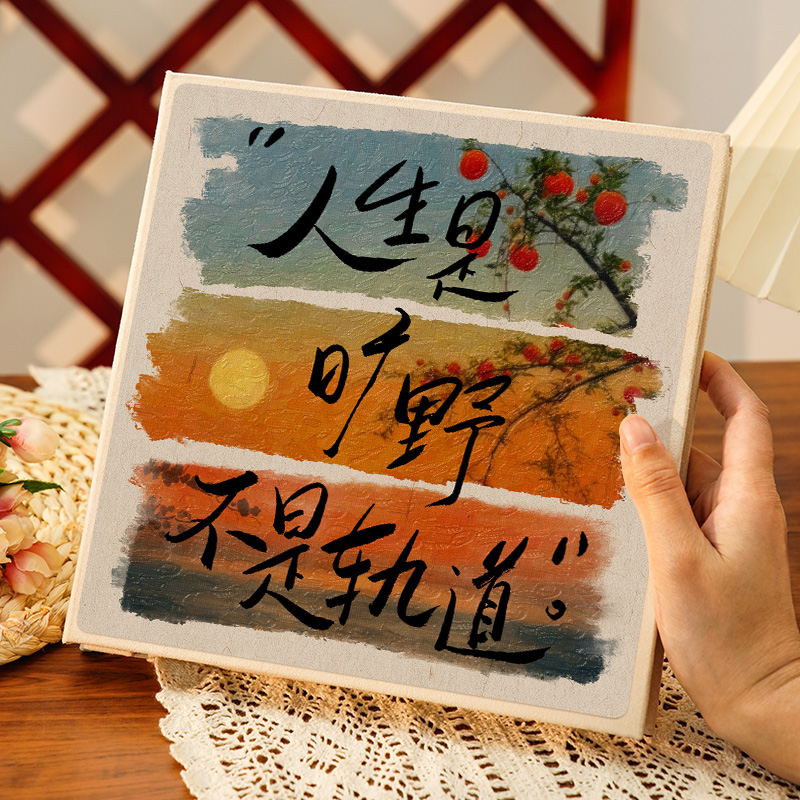 "人生是
旷野
不是轨道"。